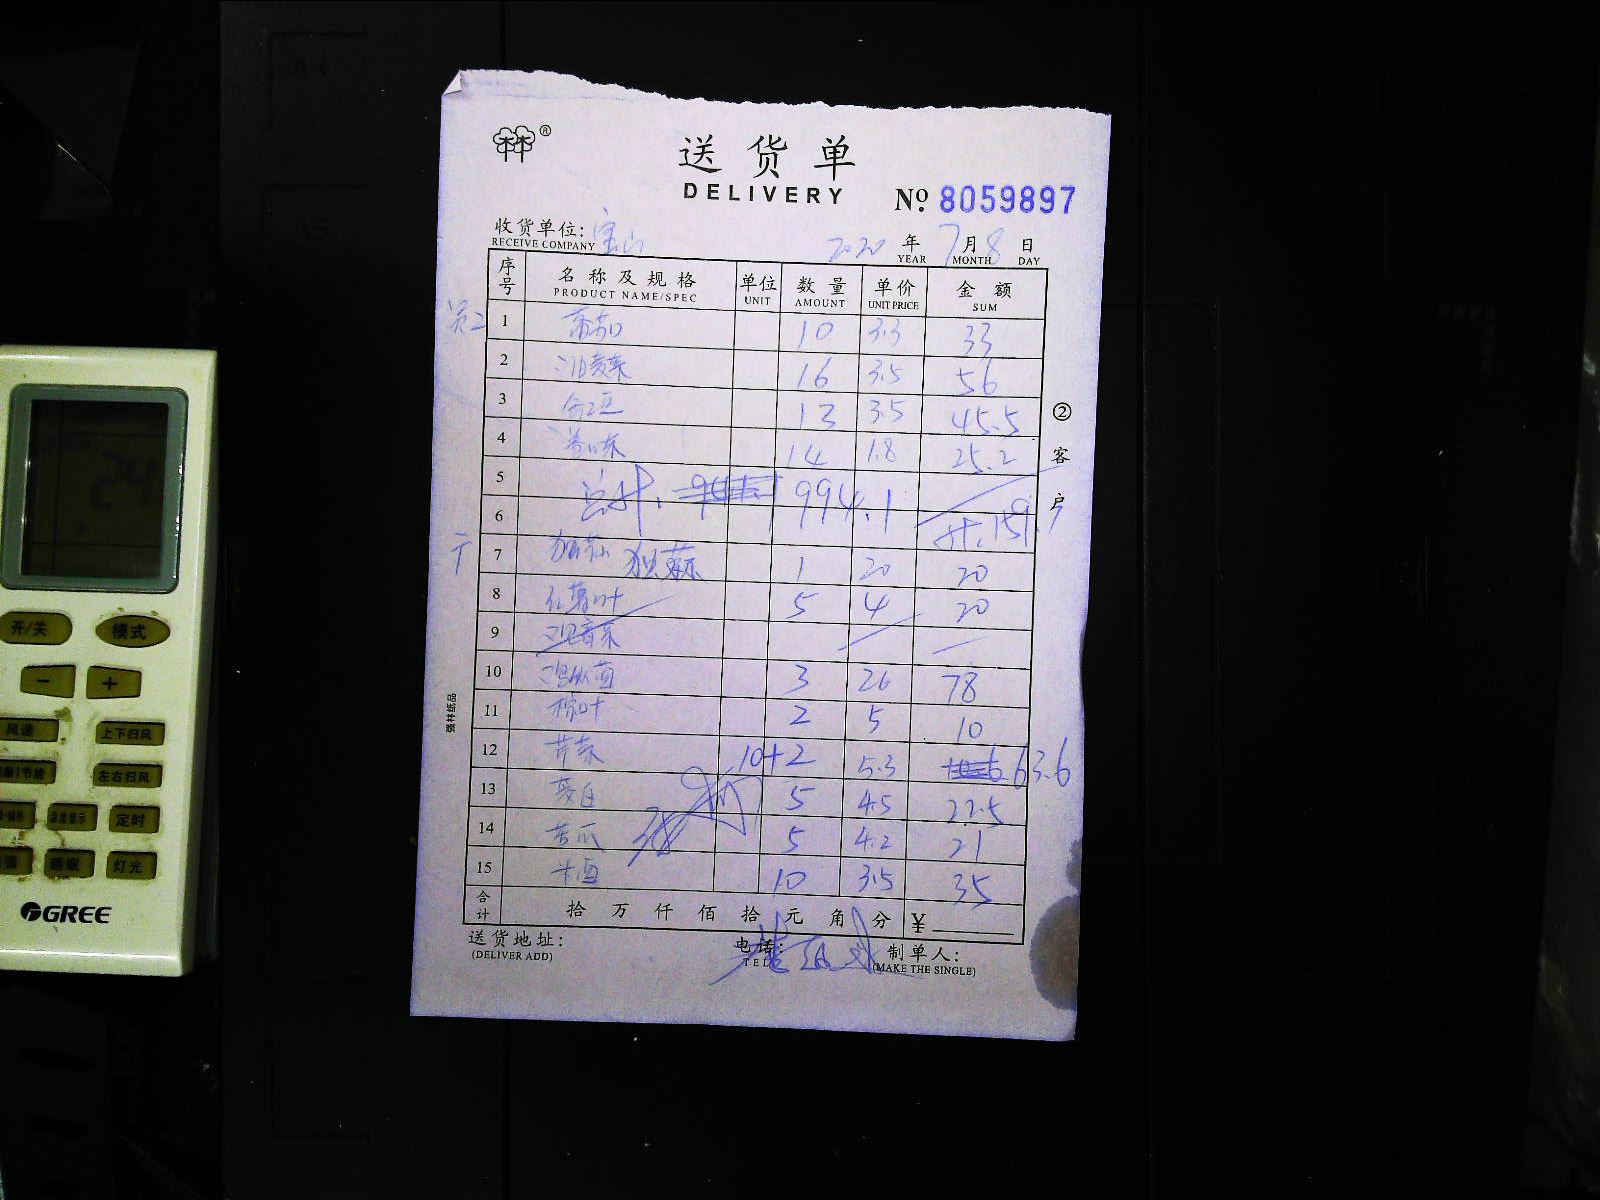 送货单
DELIVERY
№ 8059897
收货单位: 宝山 2020 年 7 月 8 日
RECEIVE COMPANY YEAR MONTH DAY
序号 名称及规格 单位 数量 单价 金额
PRODUCT NAME/SPEC UNIT AMOUNT UNIT PRICE SUM
1 10 3.3 33
2 油麦菜 16 3.5 56
3 13 3.5 45.5
4 14 1.8 25.2
5 总计. 994.1
6 计.159.7
7 独蒜 1 20 20
8 红薯叶 5 4 20
9 观音菜
10 鸡纵菌 3 26 78
11 棕叶 2 5 10
12 芹菜 10+2 5.3 63.6
13 茭白 5 4.5 22.5
14 苦瓜 5 4.2 21
15 米酒 10 3.5 35
合计 拾 万 仟 佰 拾 元 角 分 ¥
送货地址: 电话: 制单人:
(DELIVER ADD) TEL (MAKE THE SINGLE)
② 客户
强林纸品
24
开/关 模式
− +
风速 上下扫风
左右扫风
定时
睡眠 灯光
GREE